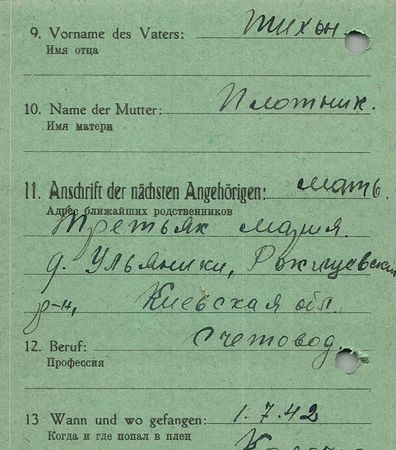 9. Vorname des Vaters: Тихон.
Имя отца
10. Name der Mutter: Плотник.
Имя матери
11. Anschrift der nächsten Angehörigen: мать.
Адрес ближайших родственников
Третьяк Мария.
д. Ульяники,
р-н, Киевская обл.
12. Beruf: Счетовод.
Профессия
13 Wann und wo gefangen: 1.7.42
Когда и где попал в плен